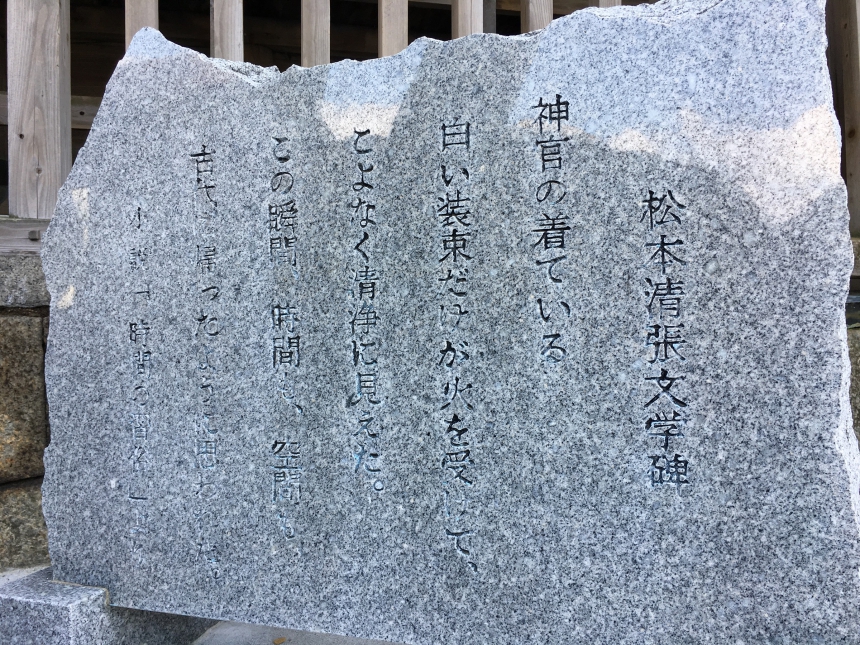 松本清張文学碑
神官の着ている
白い装束だけが火を受けて、
こよなく清浄に見えた。
この瞬間、時間も、空間も、
古代に帰ったように思われた。
小説「時間の習俗」より